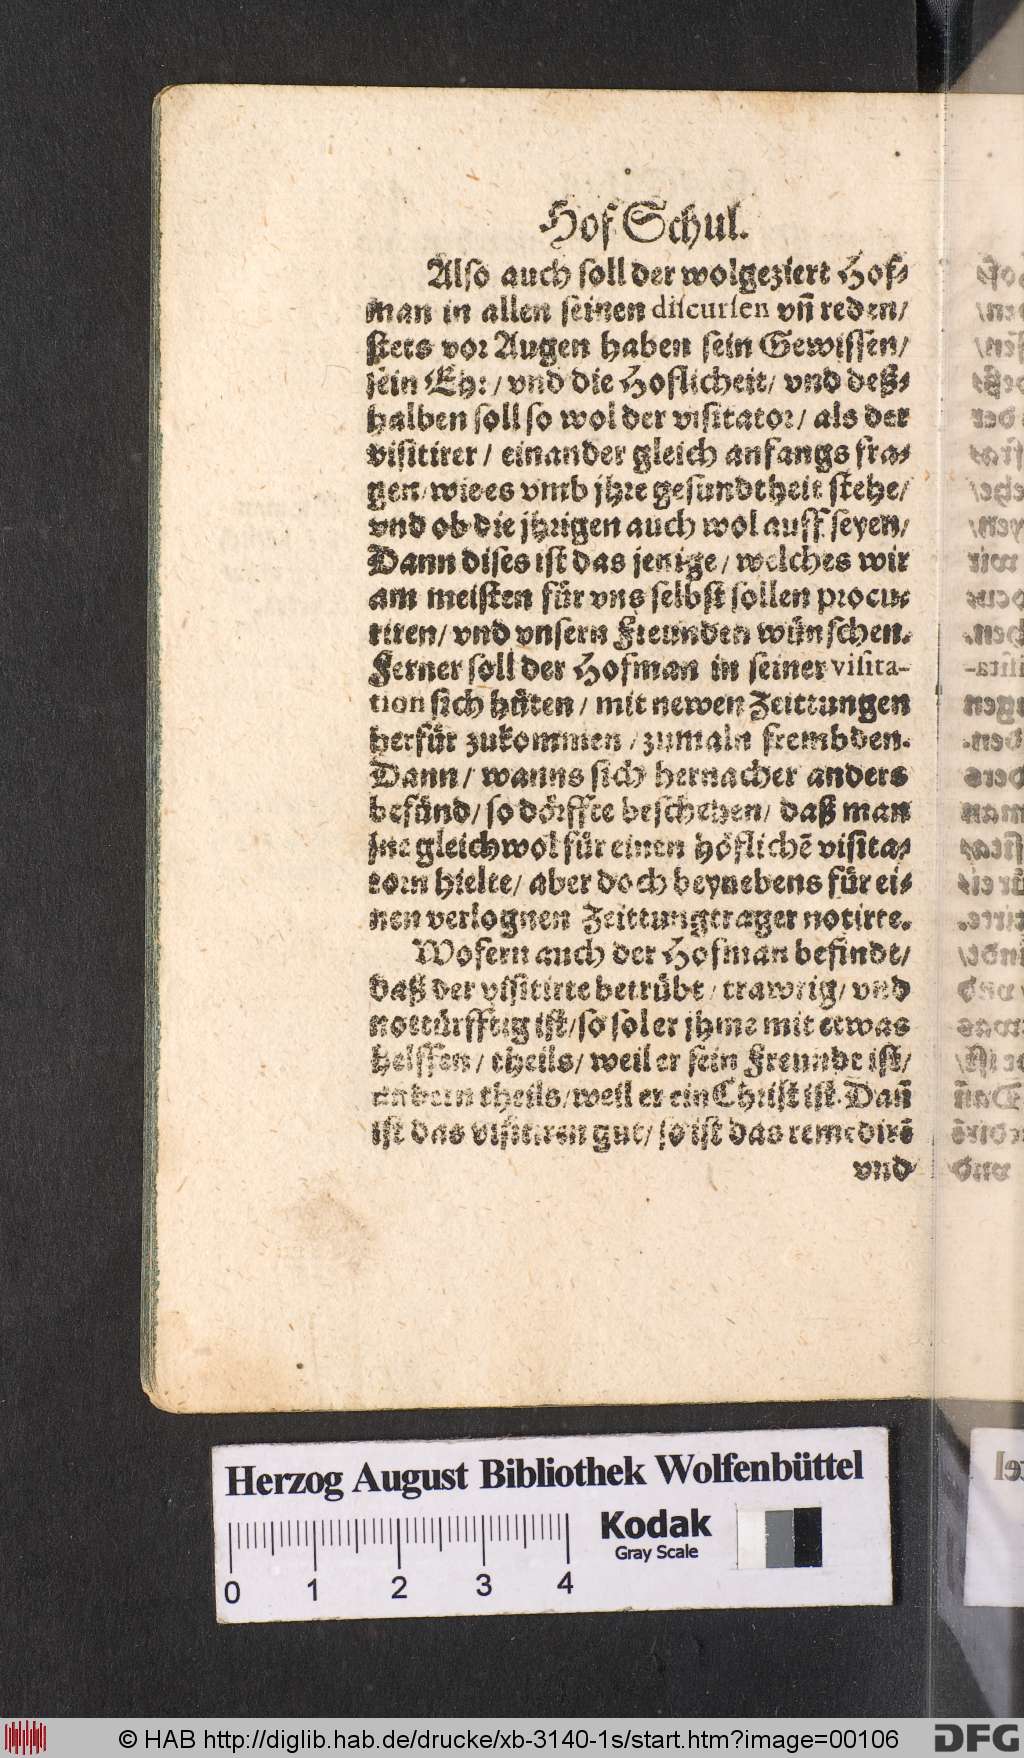 Hof Schul.
Also auch soll der wolgeziert Hof-
man in allen seinen discursen vñ reden/
stets vor Augen haben sein Gewissen/
sein Ehr/ vnd die Hoflicheit/ vnd deß-
halben soll so wol der visitator/ als der
visitirer/ einander gleich anfangs fra-
gen/ wie es vmb jhre gesundtheit stehe/
vnd ob die jhrigen auch wol auff seyen/
Dann dises ist das jenige/ welches wir
am meisten für vns selbst sollen procu-
riren/ vnd vnsern Freunden wünschen.
Ferner soll der Hofman in seiner visita-
tion sich hüten/ mit newen Zeittungen
herfür zukommen/ zumaln frembden.
Dann/ wanns sich hernacher anders
befünd/ so dörffte beschehen/ daß man
jne gleichwol für einen höflichē visita-
torn hielte/ aber doch beynebens für ei-
nen verlognen Zeittungtrager notirte.
Wofern auch der Hofman befindt/
daß der visitirte betrübt/ trawrig/ vnd
notturfftig ist/ so sol er jhme mit etwas
helffen/ theils/ weil er sein Freundt ist/
andern theils/ weil er ein Christ ist. Dañ
ist das visitiren gut/ so ist das remedirē
vnd
Herzog August Bibliothek Wolfenbüttel
Kodak
Gray Scale
0 1 2 3 4
© HAB http://diglib.hab.de/drucke/xb-3140-1s/start.htm?image=00106
DFG